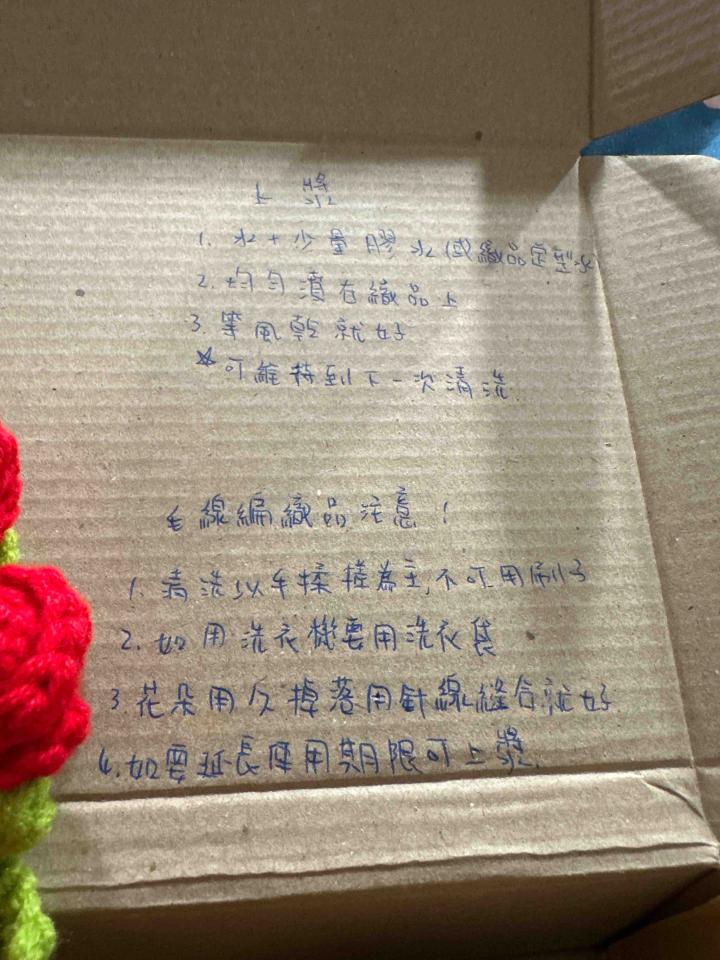 上 漿
1. 水+少量膠水(或織品定型水
2. 均勻噴在織品上
3. 等風乾就好
☆可維持到下一次清洗
毛線編織品注意!
1. 清洗以手揉搓為主,不可用刷子
2. 如用洗衣機要用洗衣袋
3. 花朵用久掉落用針線縫合就好
4. 如要延長使用期限可上漿.